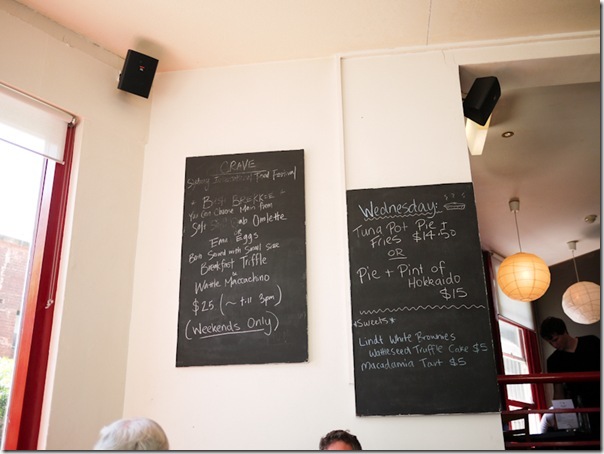 CRAVE
Sydney International Food Festival
" BEST BREKKIE "
You Can Choose Main From
Salt Omlette
or
Emu Eggs
Both Served with Small Size
Breakfast Triffle
Wattle Maccachino
$25 (~ till 3pm)
(Weekends Only)
Wednesday:
Tuna Pot Pie &
Fries $14.50
OR
Pie + Pint of
Hokkaido
$15
*Sweets*
Lindt White Brownies
Wattleseed Truffle Cake $5
Macadamia Tart $5